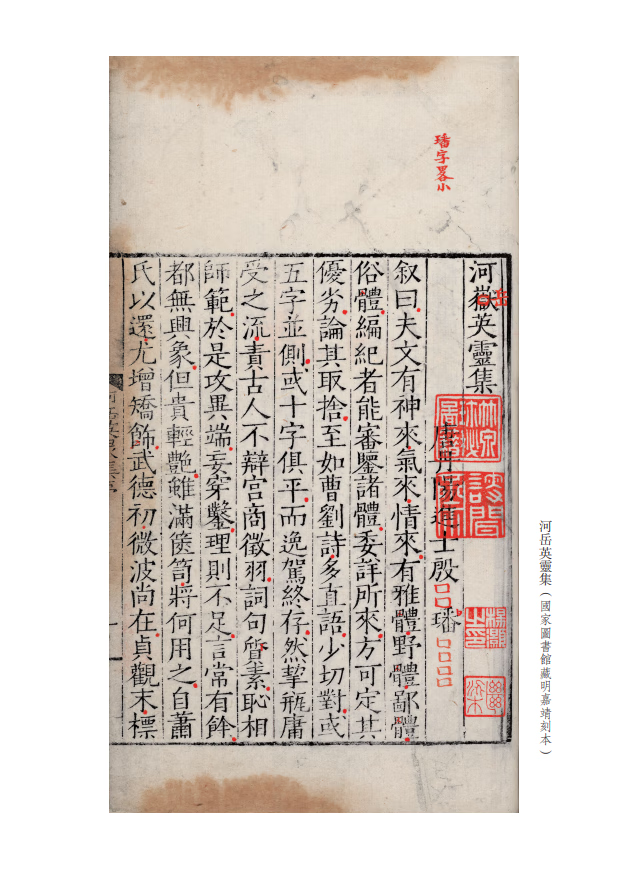 河嶽英靈集
岳
唐丹陽進士殷璠
叙曰夫文有神來氣來情來有雅體野體鄙體
俗體編紀者能審鑒諸體委詳所來方可定其
優劣論其取捨至如曹劉詩多直語少切對或
五字並側或十字俱平而逸駕終存然挈瓶庸
受之流責古人不辯宫商徵羽詞句質素恥相
師範於是攻異端妄穿鑿理則不足言常有餘
都無興象但貴輕艷雖滿篋笥將何用之自蕭
氏以還尤增矯飾武德初微波尚在貞觀末標
璠字畧小
河岳英靈集（國家圖書館藏明嘉靖刻本）